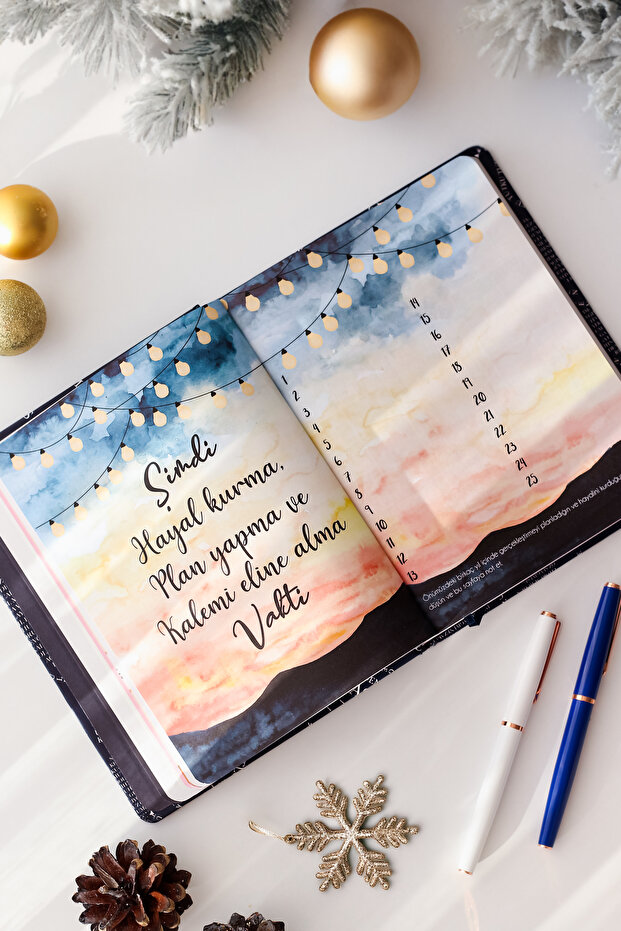 Şimdi
Hayal kurma,
Plan yapma ve
Kalemi eline alma
Vakti
1
2
3
4
5
6
7
8
9
10
11
12
13
14
15
16
17
18
19
20
21
22
23
24
25
Önümüzdeki birkaç yıl içinde gerçekleştirmeyi planladığın ve hayalini kurduğun
düşün ve bu sayfaya not et.